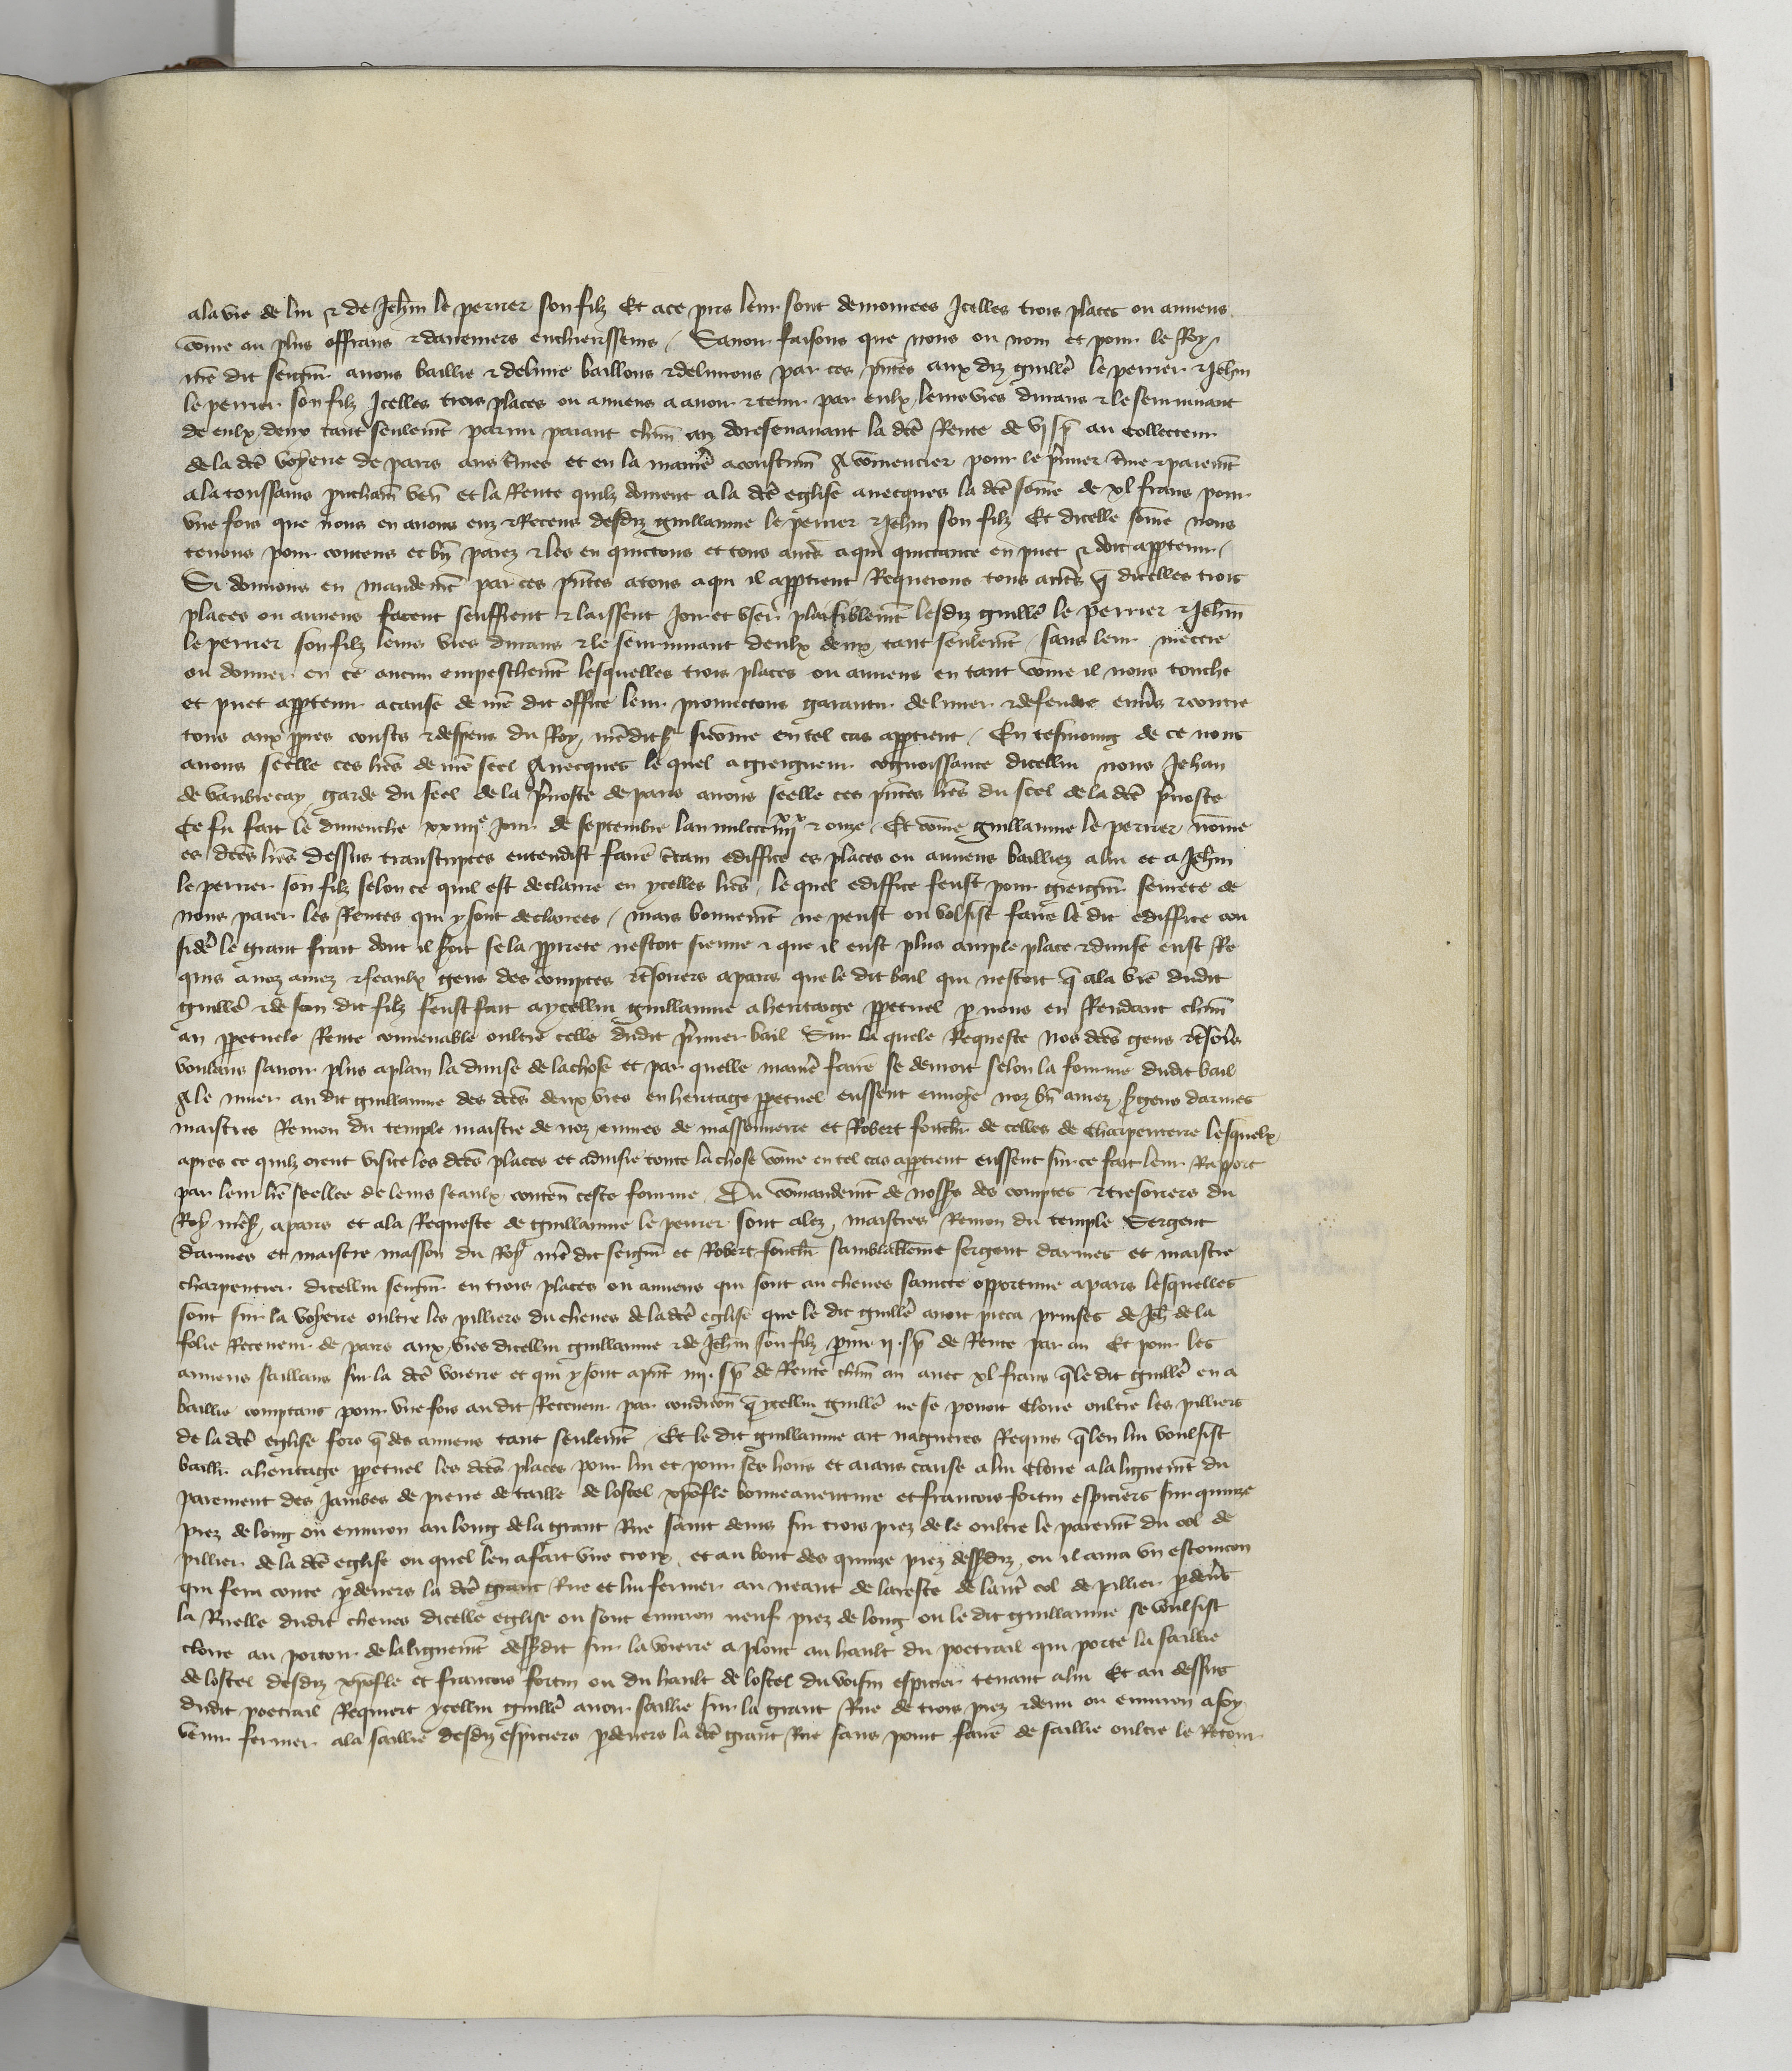 a la vie de lui & de Jehan le perrier son filz Et a ce pris leur sont demourees Icelles trois places ou auvens
cõme au plus offrans & darreniers encherissens / Savoir faisons que nous ou nom et pour le Roy
nr̃e dit seigñr avons baillie & delivre baillons & delivrons par ces p̃ntes aux diz guillẽ le perrier & Jehan
le perrier son filz Icelles trois places ou auvens a avoir & tenir par eulx leurs vies durans & le seurvivant
de eulx deux tant seulem̃t parmi paiant chũn an doresenavant la dc̃e Rente de vj s p̃ au collecteur
de la dc̃e voyerie de paris aus t̃mes et en la manierẽ acoustum̃ A cõmencier pour le p̃mier t̃me & paiem̃t
a la toussains prochaiñ veñ et la Rente quilz doivent a la dc̃e eglise avecques la dc̃e sõme de xl frans pour
une fois que nous en avons euz & Receus desdiz guillaume le perrier & Jehan son filz Et dicelle sõme nous
tenons pour contens et bñ paiez & les en quittons et tous autr̃s a qui quittance en puet & doit app̃tenir /
Si donnons en mandem̃t par ces p̃ntes a tous a qui il app̃tient Requerons tous autr̃s q̃ dicelles trois
places ou auvens facent seuffrent & laissent Joir et user plaisiblem̃t lesdiz guillẽ le perrier & Jehan
le perrier son filz leurs vies durans & le seurvivant deulx deux tant seulem̃t / sans leur mectre
ou donner en ce aucun empeschem̃t lesquelles trois places ou auvens en tant cõme il nous touche
et puet app̃tenir a cause de nr̃e dit office leur promectons garantir delivrer & defendre enṽs & contre
tous aux p̃pres cousts & despens du Roy nr̃e dit s̃ sicõme en tel cas app̃tient / En tesmoing de ce nous
avons seelle ces lr̃es de nr̃e seel Avecques le quel a greigneur cognoissance dicellui nous Jehan
de vaubrecay garde du seel de la p̃voste de paris avons seelle ces p̃ntes lr̃es du seel de la dc̃e p̃voste
Ce fu fait le dimenche xxiiije Jour de septembre lan mil ccc iiijxx & onze / Et cõme guillaume le perrier nõme
es dc̃es lr̃es dessus transcriptes entendist fairẽ c̃tain ediffice es places ou auvens bailliez a lui et a Jehan
le perrier son filz selon ce quil est declaire en ycelles lr̃es / le quel ediffice feust pour greigñr seurete de
nous paier les Rentes qui y sont declairees / mais bonnem̃t ne peust ou volsist faire le dit ediffice con
sid̃e le grant frait dont il s̃oit se la p̃priete nestoit sienne & que il eust plus ample place & dunse eust Re
quis a noz amez & feaulx gens des comptes & t̃soriers a paris que le dit bail qui nestoit q̃ a la vie dudit
guillẽ & de son dit filz feust fait a ycellui guillaume a heritaige p̃petuel p̃ nous en Rendant chũn
an p̃petuele Rente convenable oultre celle dudit p̃mier bail Sur la quele Requeste Nos dc̃es gens & t̃soriers
voulans savoir plus a plain la dunse de la chose et par quelle manierẽ fairẽ se devroit selon la fourme dudit bail
A le muer au dit guillaume des dc̃es deux vies en heritage p̃petuel eussent envoie noz bñ amez s̃gens darmes
maistres Remon du temple maistre de noz euvres de massonnerie et Robert fouch̃r de celles de Charpenterie lesquelx
apres ce quilz orent visite les dc̃es places et advisie toute la chose cõme en tel cas app̃tient eussent sur ce fait leur Rapport
par leur lr̃e seellee de leurs seaulx conteñ ceste fourme / Du cõmandem̃t de noss̃s des comptes & tresoriers du
Roy nr̃e s̃ a paris et a la Requeste de guillaume le perrier sont alez maistres Remon du temple Sergent
darmes et maistre masson du Roy nr̃e dit seigñr et Robert fouch̃r samblablemẽt sergent darmes et maistre
charpentier dicellui seigñr en trois places ou auvens qui sont au cheves saincte opportune a paris lesquelles
sont sur la voyerie oultre les pilliers du cheves de la dc̃e eglise que le dit guillẽ avoit pieca prinses de Jeh̃ de la
folie Receveur de paris aux vies dicellui guillaume & de Jehan son filz p̃mi ij s p̃ de Rente par an Et pour les
auvens saillans sur la dc̃e voierie et qui y sont ap̃nt iiij s p̃ de Rente chũn an avec xl frans q̃ le dit guillẽ en a
baillie comptans pour une fois au dit Receveur par condicioñ q̃ ycellui guillẽ ne se povoit clorre oultre les pilliers
de la dc̃e eglise fors q̃ des auvens tant seulem̃t / Et le dit guillaume ait nagueres Requis q̃ len lui voulsist
baillr̃ a heritage p̃petuel les dc̃es places pour lui et pour ses hoirs et aians cause a lui clorre a lalignem̃t du
parement des Jambes de pierre de taille de lostel xp̃ofle bonneaventure et francois fortin espiciers sur quinze
piez de long ou environ au long de la grant Rue saint denis sur trois piez de le oultre le parem̃t du col de
pillier de la dc̃e eglise ou quel len a fait une croix / et au bout des quinze piez dess̃diz ou il aura un estoincon
qui fera coute p̃devers la dc̃e grant Rue et lui fermer au neant de lareste de lautr̃ col de pillier p̃deṽs
la Ruelle dudit cheves dicelle eglise ou sont environ neuf piez de long ou le dit guillaume se voulsist
clorre au portour de lalignem̃t dess̃dit sur la voierie a plont au hault du poetrail qui porte la saillie
de lostel desdiz xp̃ofle et francois fortin ou du hault de lostel du voisin espicier tenant a lui Et au dessus
dudit poetrail Requiert ycellui guillẽ avoir saillie sur la grant Rue de trois piez & demi ou environ a soy
venir fermer a la saillie desdiz espiciers p̃devers la dc̃e grant Rue sans point fairẽ de saillie oultre le Retour